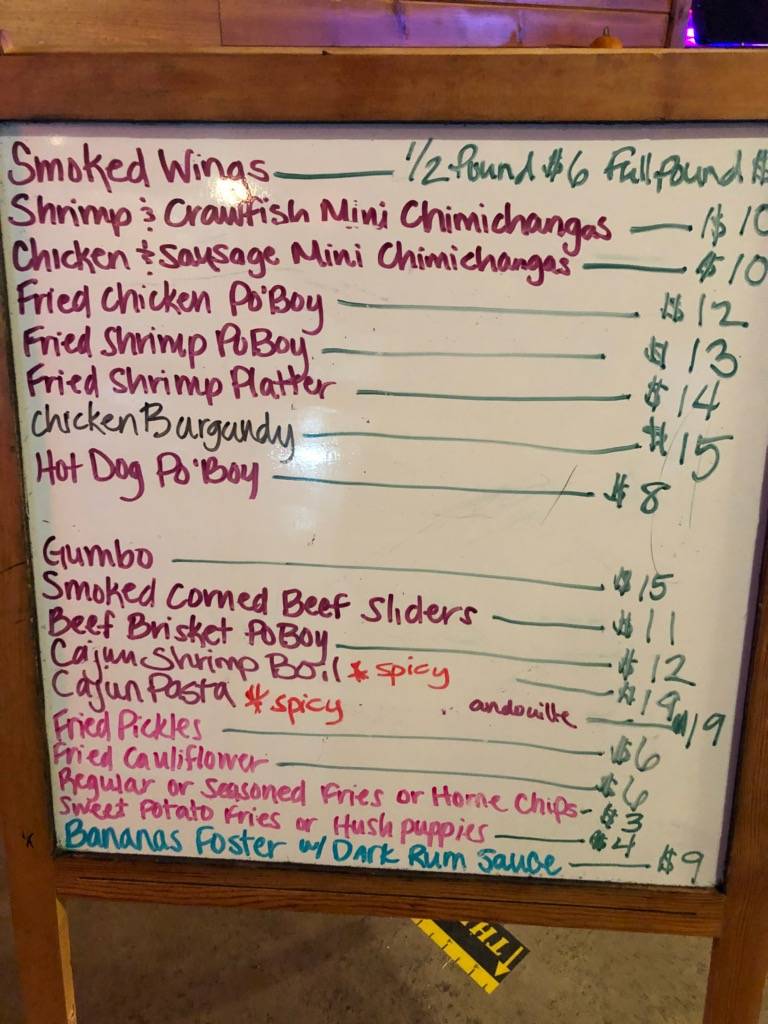 Smoked Wings 1/2 Pound $6 Full Pound $
Shrimp & Crawfish Mini Chimichangas $10
Chicken & Sausage Mini Chimichangas $10
Fried Chicken Po'Boy $12
Fried Shrimp PoBoy $13
Fried Shrimp Platter $14
Chicken Burgandy $15
Hot Dog Po'Boy $8
Gumbo $15
Smoked Corned Beef Sliders $11
Beef Brisket PoBoy $12
Cajun Shrimp Boil * spicy $19
Cajun Pasta * spicy andouille $19
Fried Pickles $6
Fried Cauliflower $6
Regular or Seasoned Fries or Home Chips - $3
Sweet Potato Fries or Hush puppies $4
Bananas Foster w/ Dark Rum Sauce $9
TH